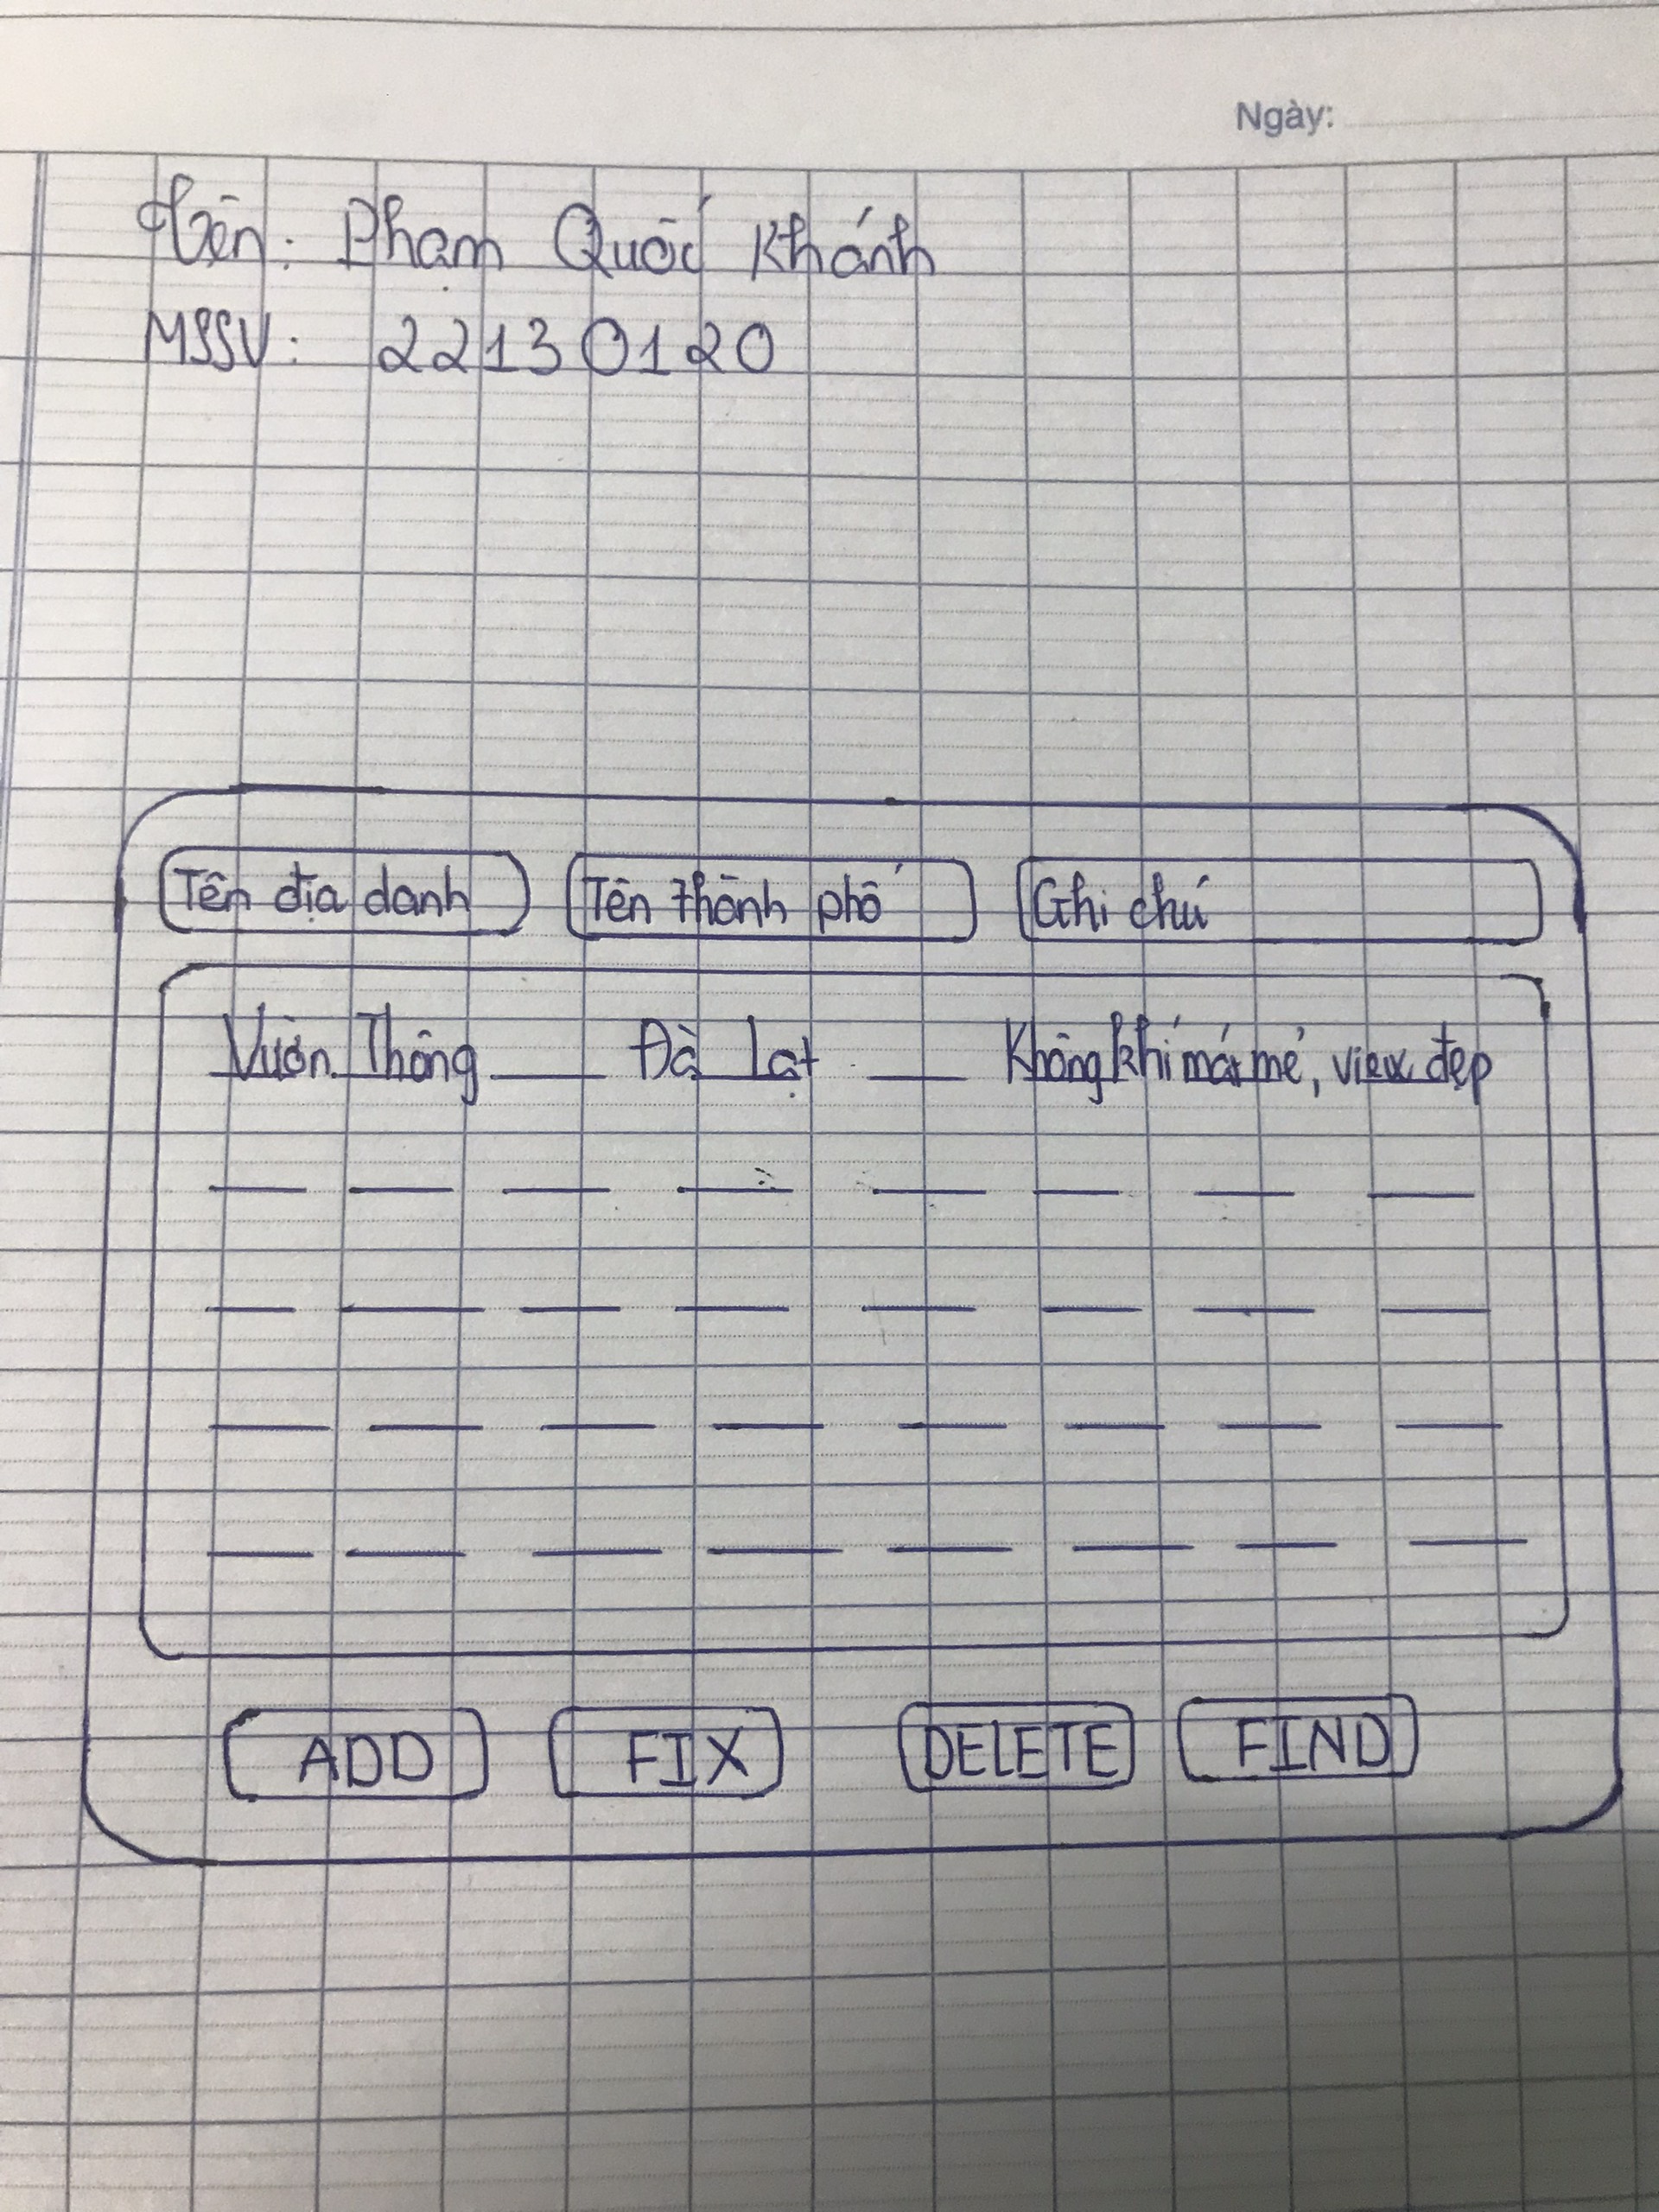 Ngày:
Tên: Phạm Quốc Khánh
MSSV: 22130120
Tên địa danh Tên thành phố Ghi chú
Vườn Thông Đà Lạt Không khí mát mẻ, view đẹp
ADD FIX DELETE FIND